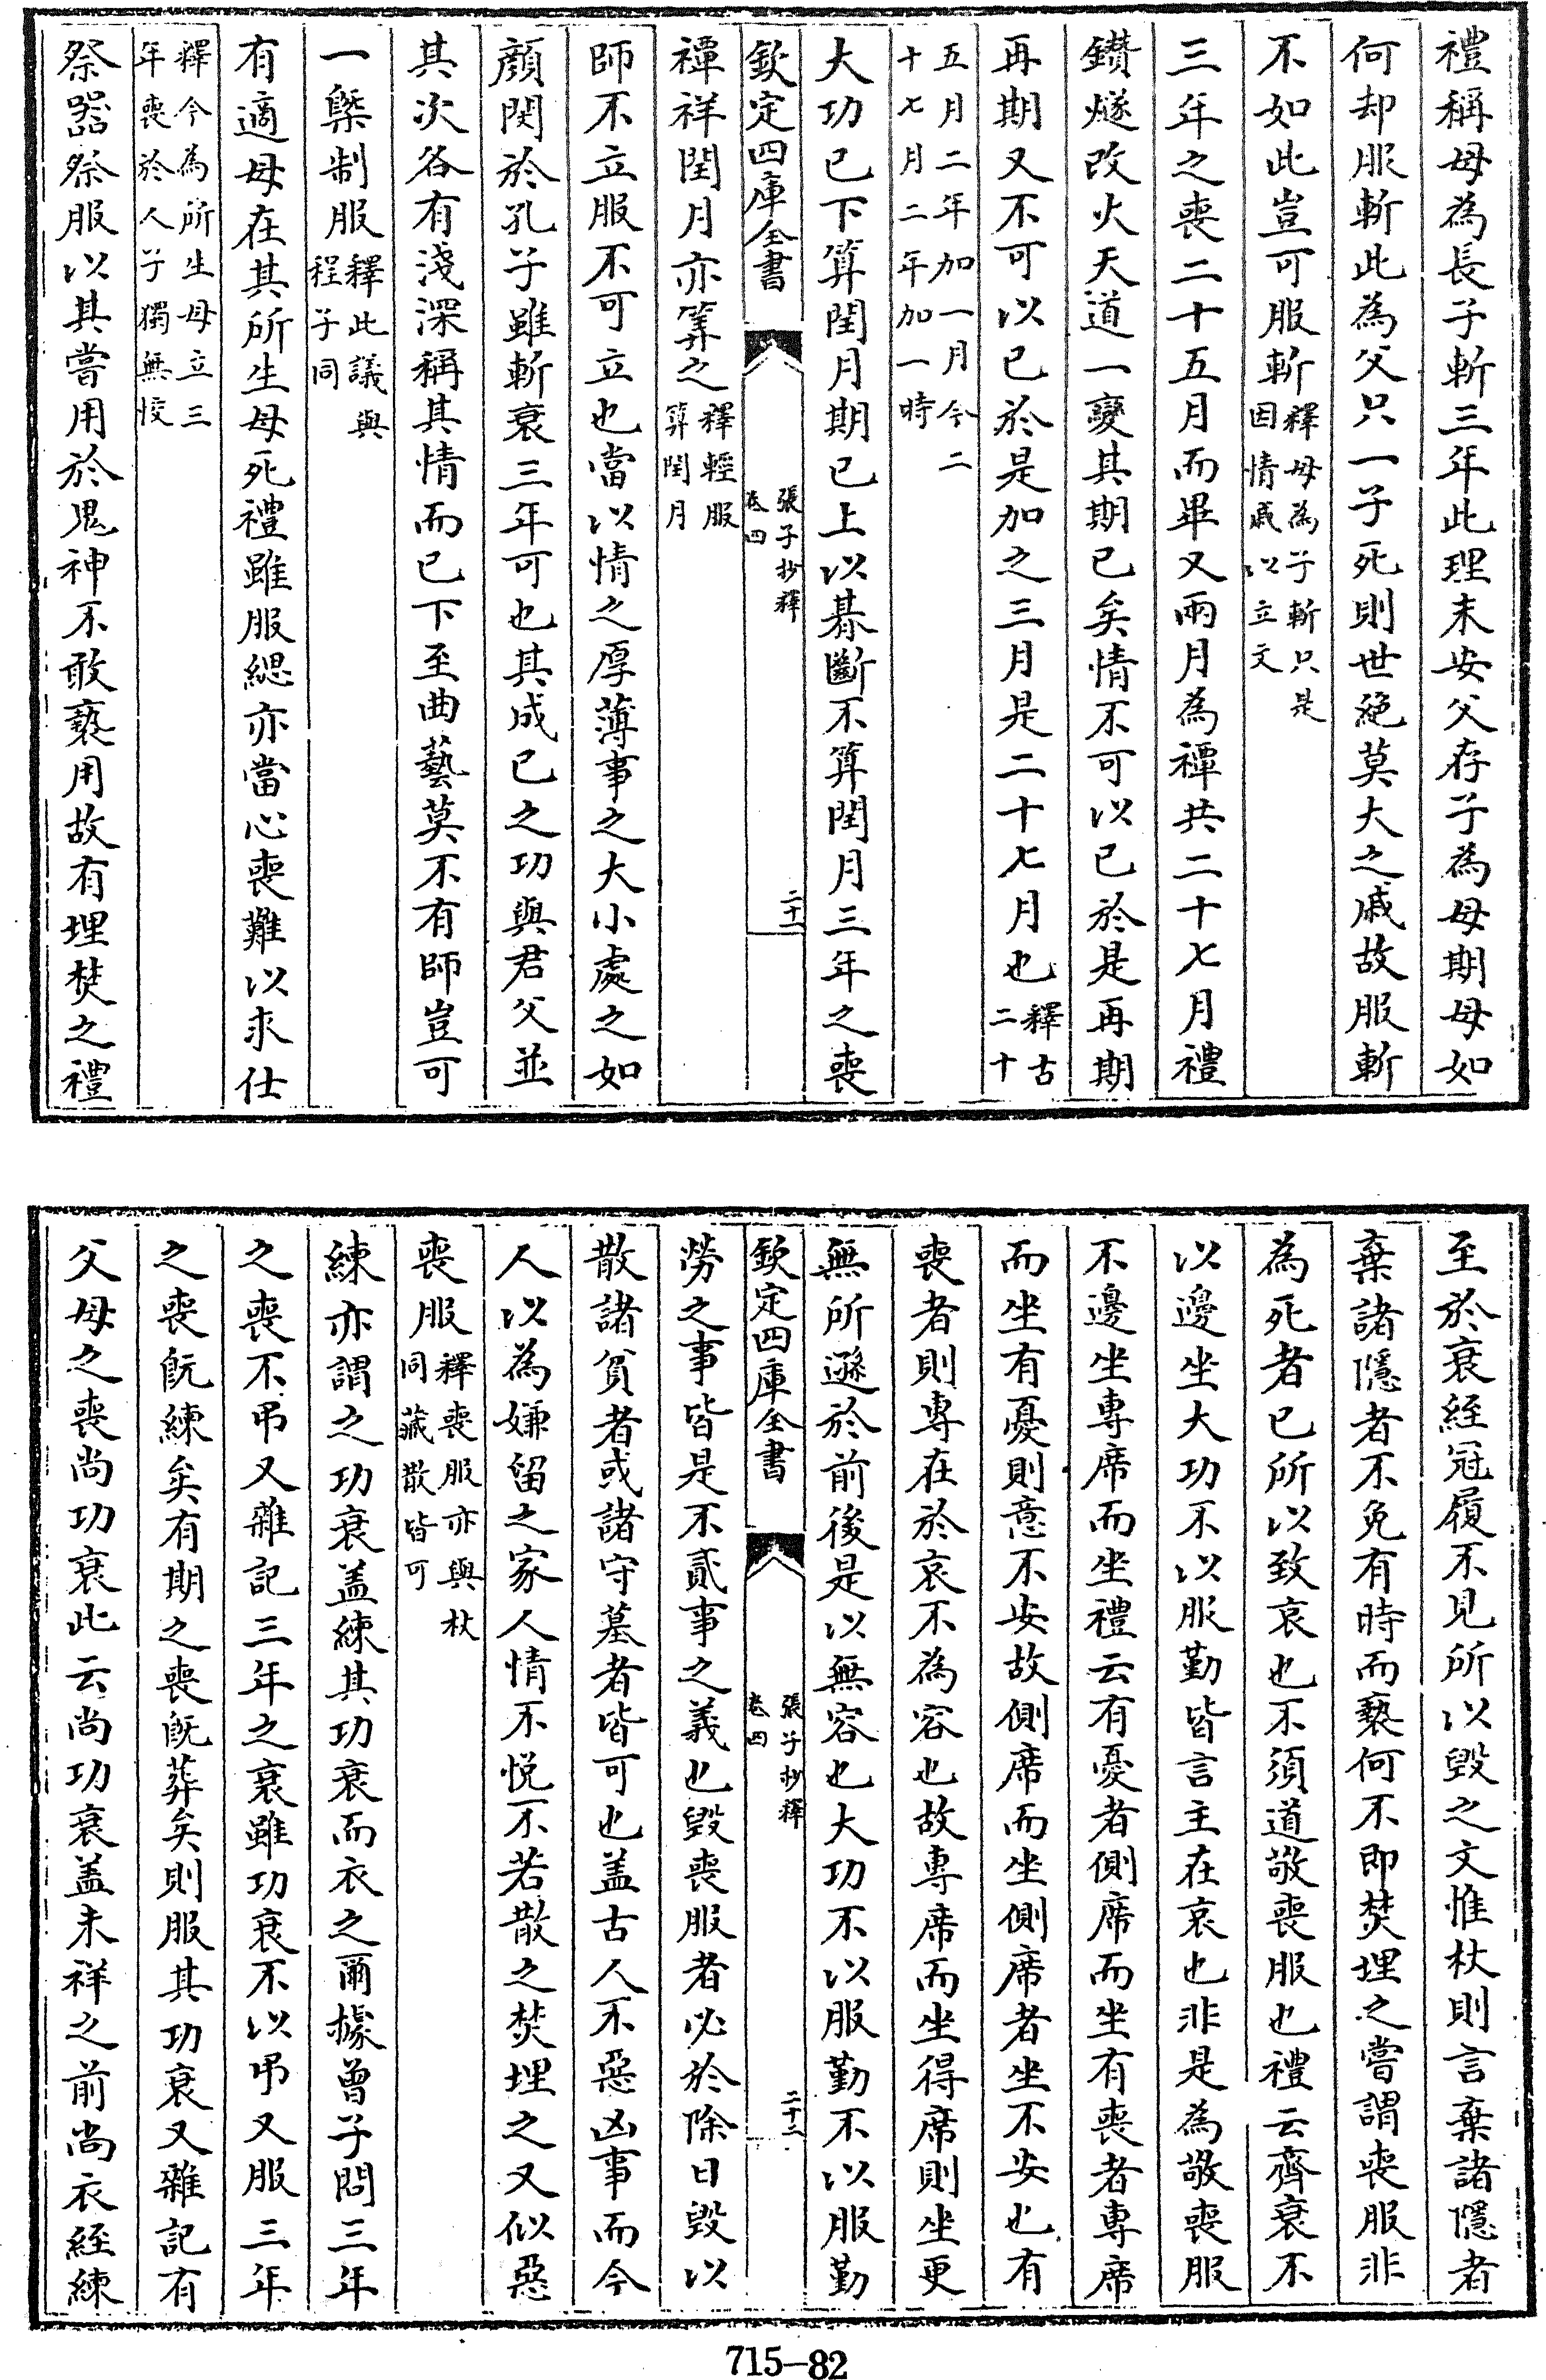 禮稱母為長子斬三年此理未安父存子為母期母如
何却服斬此為父只一子死則世絶莫大之戚故服斬
不如此豈可服斬釋母為子斬只是
因情戚以立文
三年之喪二十五月而畢又兩月為禫共二十七月禮
鑚燧改火天道一變其期已矣情不可以已於是再期
再期又不可以已於是加之三月是二十七月也釋古
二十
五月二年加一月今二
十七月二年加一時
大功已下算閏月期已上以朞斷不算閏月三年之喪
欽定四庫全書
張子抄釋
卷四
二十一
禫祥閏月亦筭之釋輕服
算閏月
師不立服不可立也當以情之厚薄事之大小處之如
顏閔於孔子雖斬衰三年可也其成已之功與君父並
其次各有淺深稱其情而已下至曲藝莫不有師豈可
一槩制服釋此議與
程子同
有適母在其所生母死禮雖服緦亦當心喪難以求仕
釋今為所生母立三
年喪於人子獨無恔
祭器祭服以其嘗用於鬼神不敢褻用故有埋焚之禮
至於衰絰冠履不見所以毀之文惟杖則言棄諸隱者
棄諸隱者不免有時而褻何不即焚埋之嘗謂喪服非
為死者已所以致哀也不須道敬喪服也禮云齊衰不
以邊坐大功不以服勤皆言主在哀也非是為敬喪服
不邊坐專席而坐禮云有憂者側席而坐有喪者專席
而坐有憂則意不安故側席而坐側席者坐不安也有
喪者則專在於哀不為容也故專席而坐得席則坐更
無所遜於前後是以無容也大功不以服勤不以服勤
欽定四庫全書
張子抄釋
卷四
二十二
勞之事皆是不貳事之義也毀喪服者必於除日毀以
散諸貧者或諸守墓者皆可也盖古人不惡凶事而今
人以為嫌留之家人情不悅不若散之焚埋之又似惡
喪服釋喪服亦與杖
同藏散皆可
練亦謂之功衰盖練其功衰而衣之爾據曾子問三年
之喪不弔又雜記三年之衰雖功衰不以弔又服三年
之喪旣練矣有期之喪旣葬矣則服其功衰又雜記有
父母之喪尚功衰此云尚功衰盖未祥之前尚衣絰練
715-82